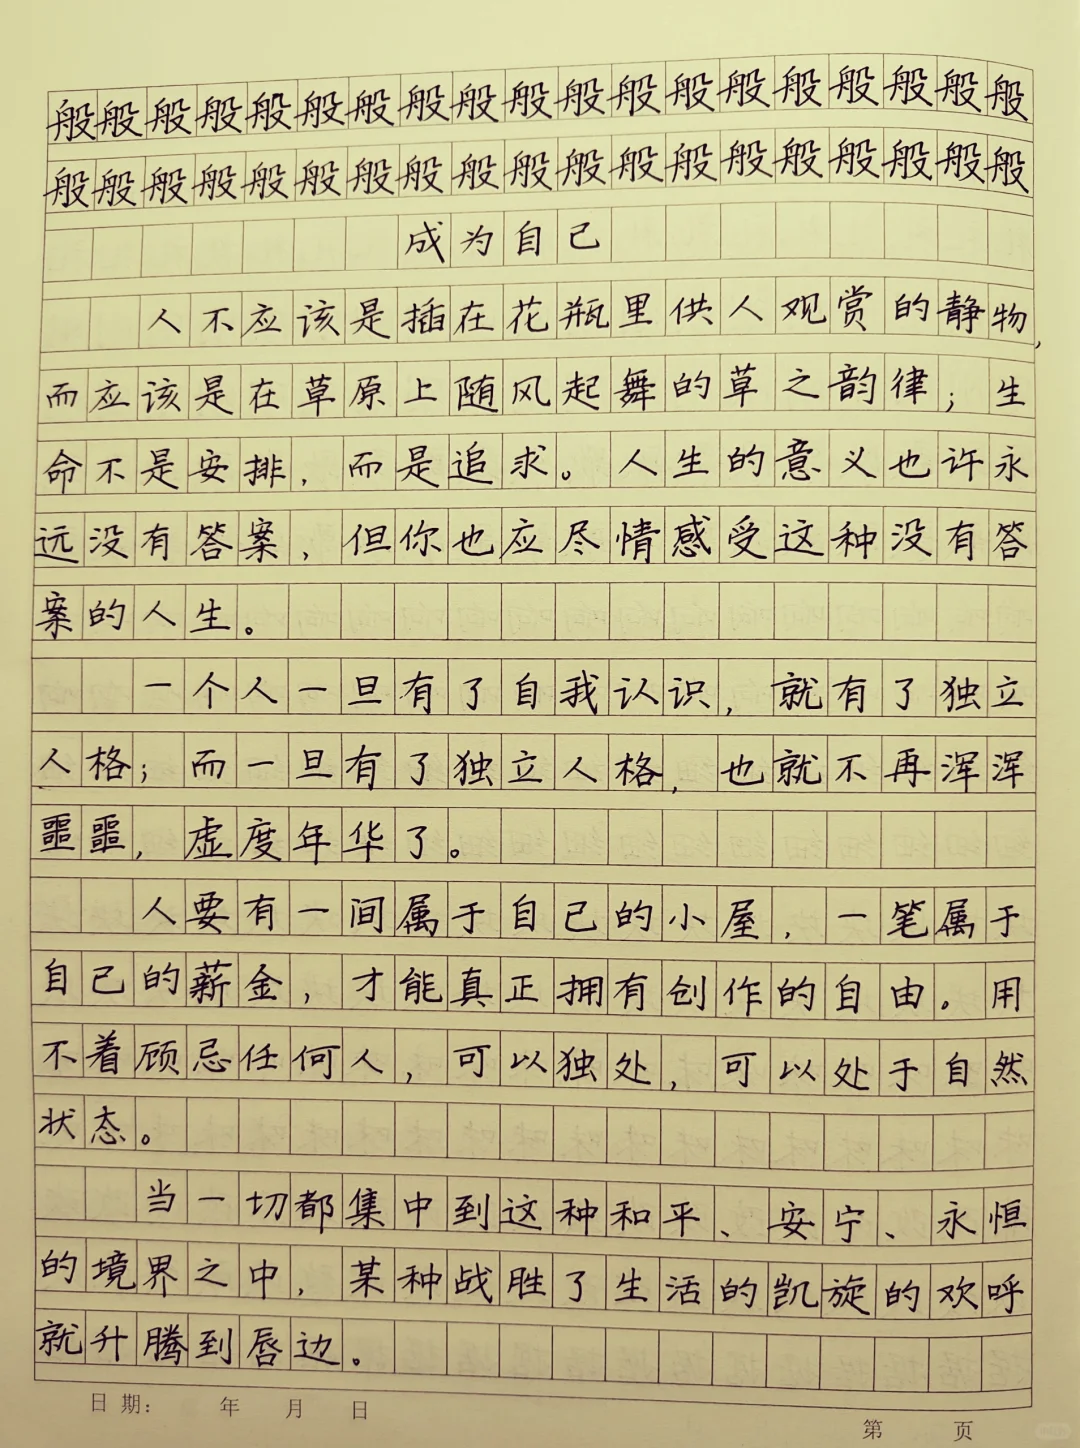 般般般般般般般般般般般般般般般般般般般
般般般般般般般般般般般般般般般般般般般
成为自己
人不应该是插在花瓶里供人观赏的静物,
而应该是在草原上随风起舞的草之韵律；生
命不是安排，而是追求。人生的意义也许永
远没有答案，但你也应尽情感受这种没有答
案的人生。
一个人一旦有了自我认识，就有了独立
人格；而一旦有了独立人格，也就不再浑浑
噩噩，虚度年华了。
人要有一间属于自己的小屋，一笔属于
自己的薪金，才能真正拥有创作的自由。用
不着顾忌任何人，可以独处，可以处于自然
状态。
当一切都集中到这种和平、安宁、永恒
的境界之中，某种战胜了生活的凯旋的欢呼
就升腾到唇边。
日期：　年　月　日
第　页